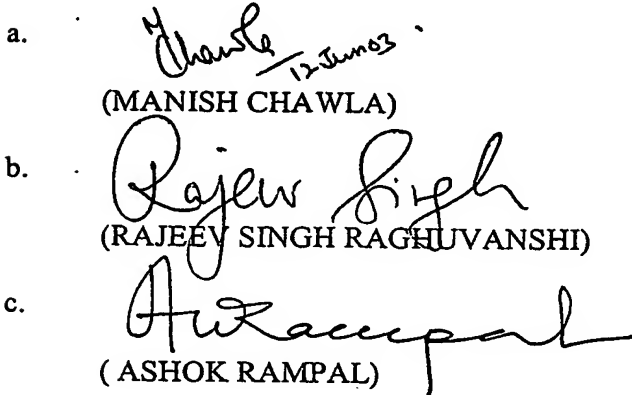 a. Chawla 12 Jun 03
(MANISH CHAWLA)
b. Rajeev Singh
(RAJEEV SINGH RAGHUVANSHI)
c. AKRampal
( ASHOK RAMPAL)